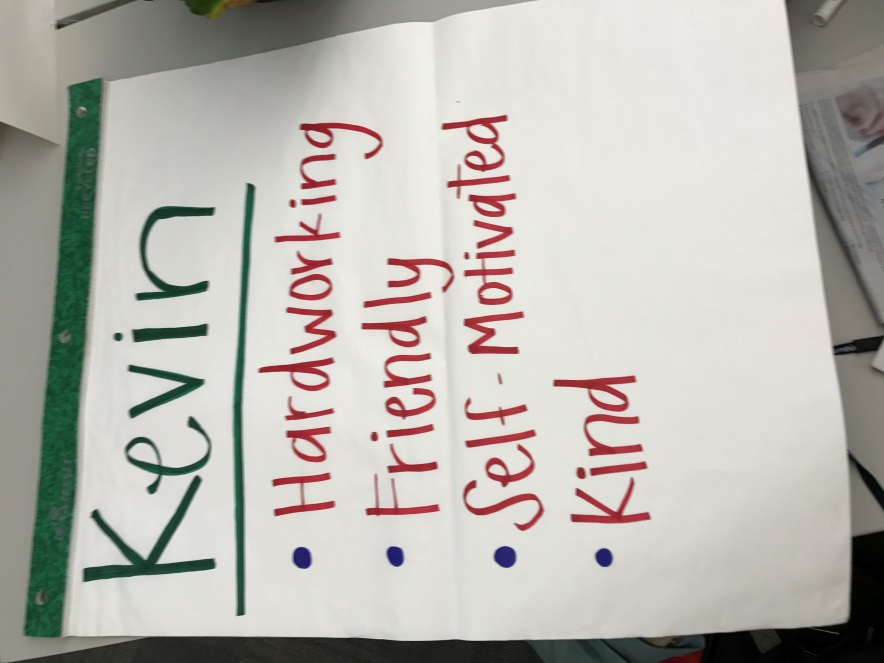 Kevin
• Hardworking
• Friendly
• Self-Motivated
• Kind